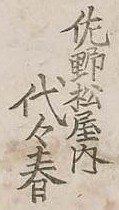 佐野松屋内
代々春